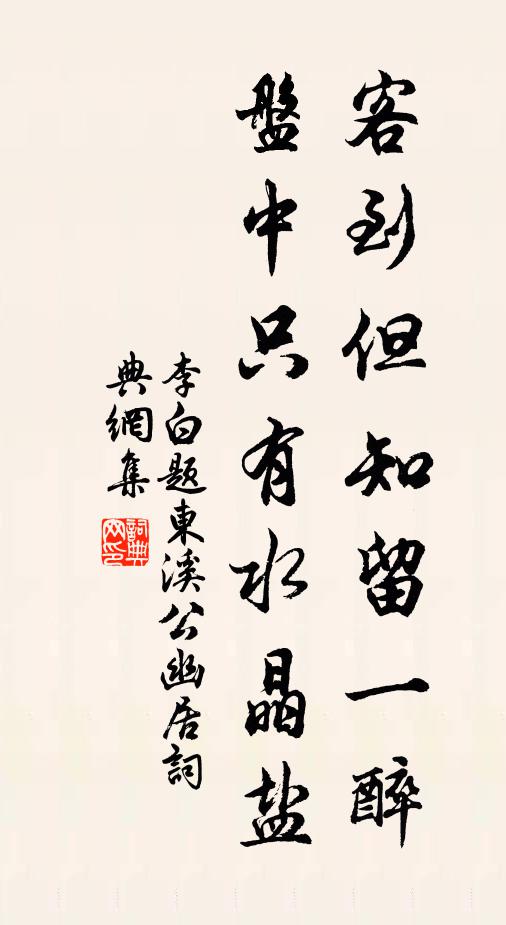 客到但知留一醉
盤中只有水晶盐
李白题東溪公幽居詞
典網集
詞典
网印